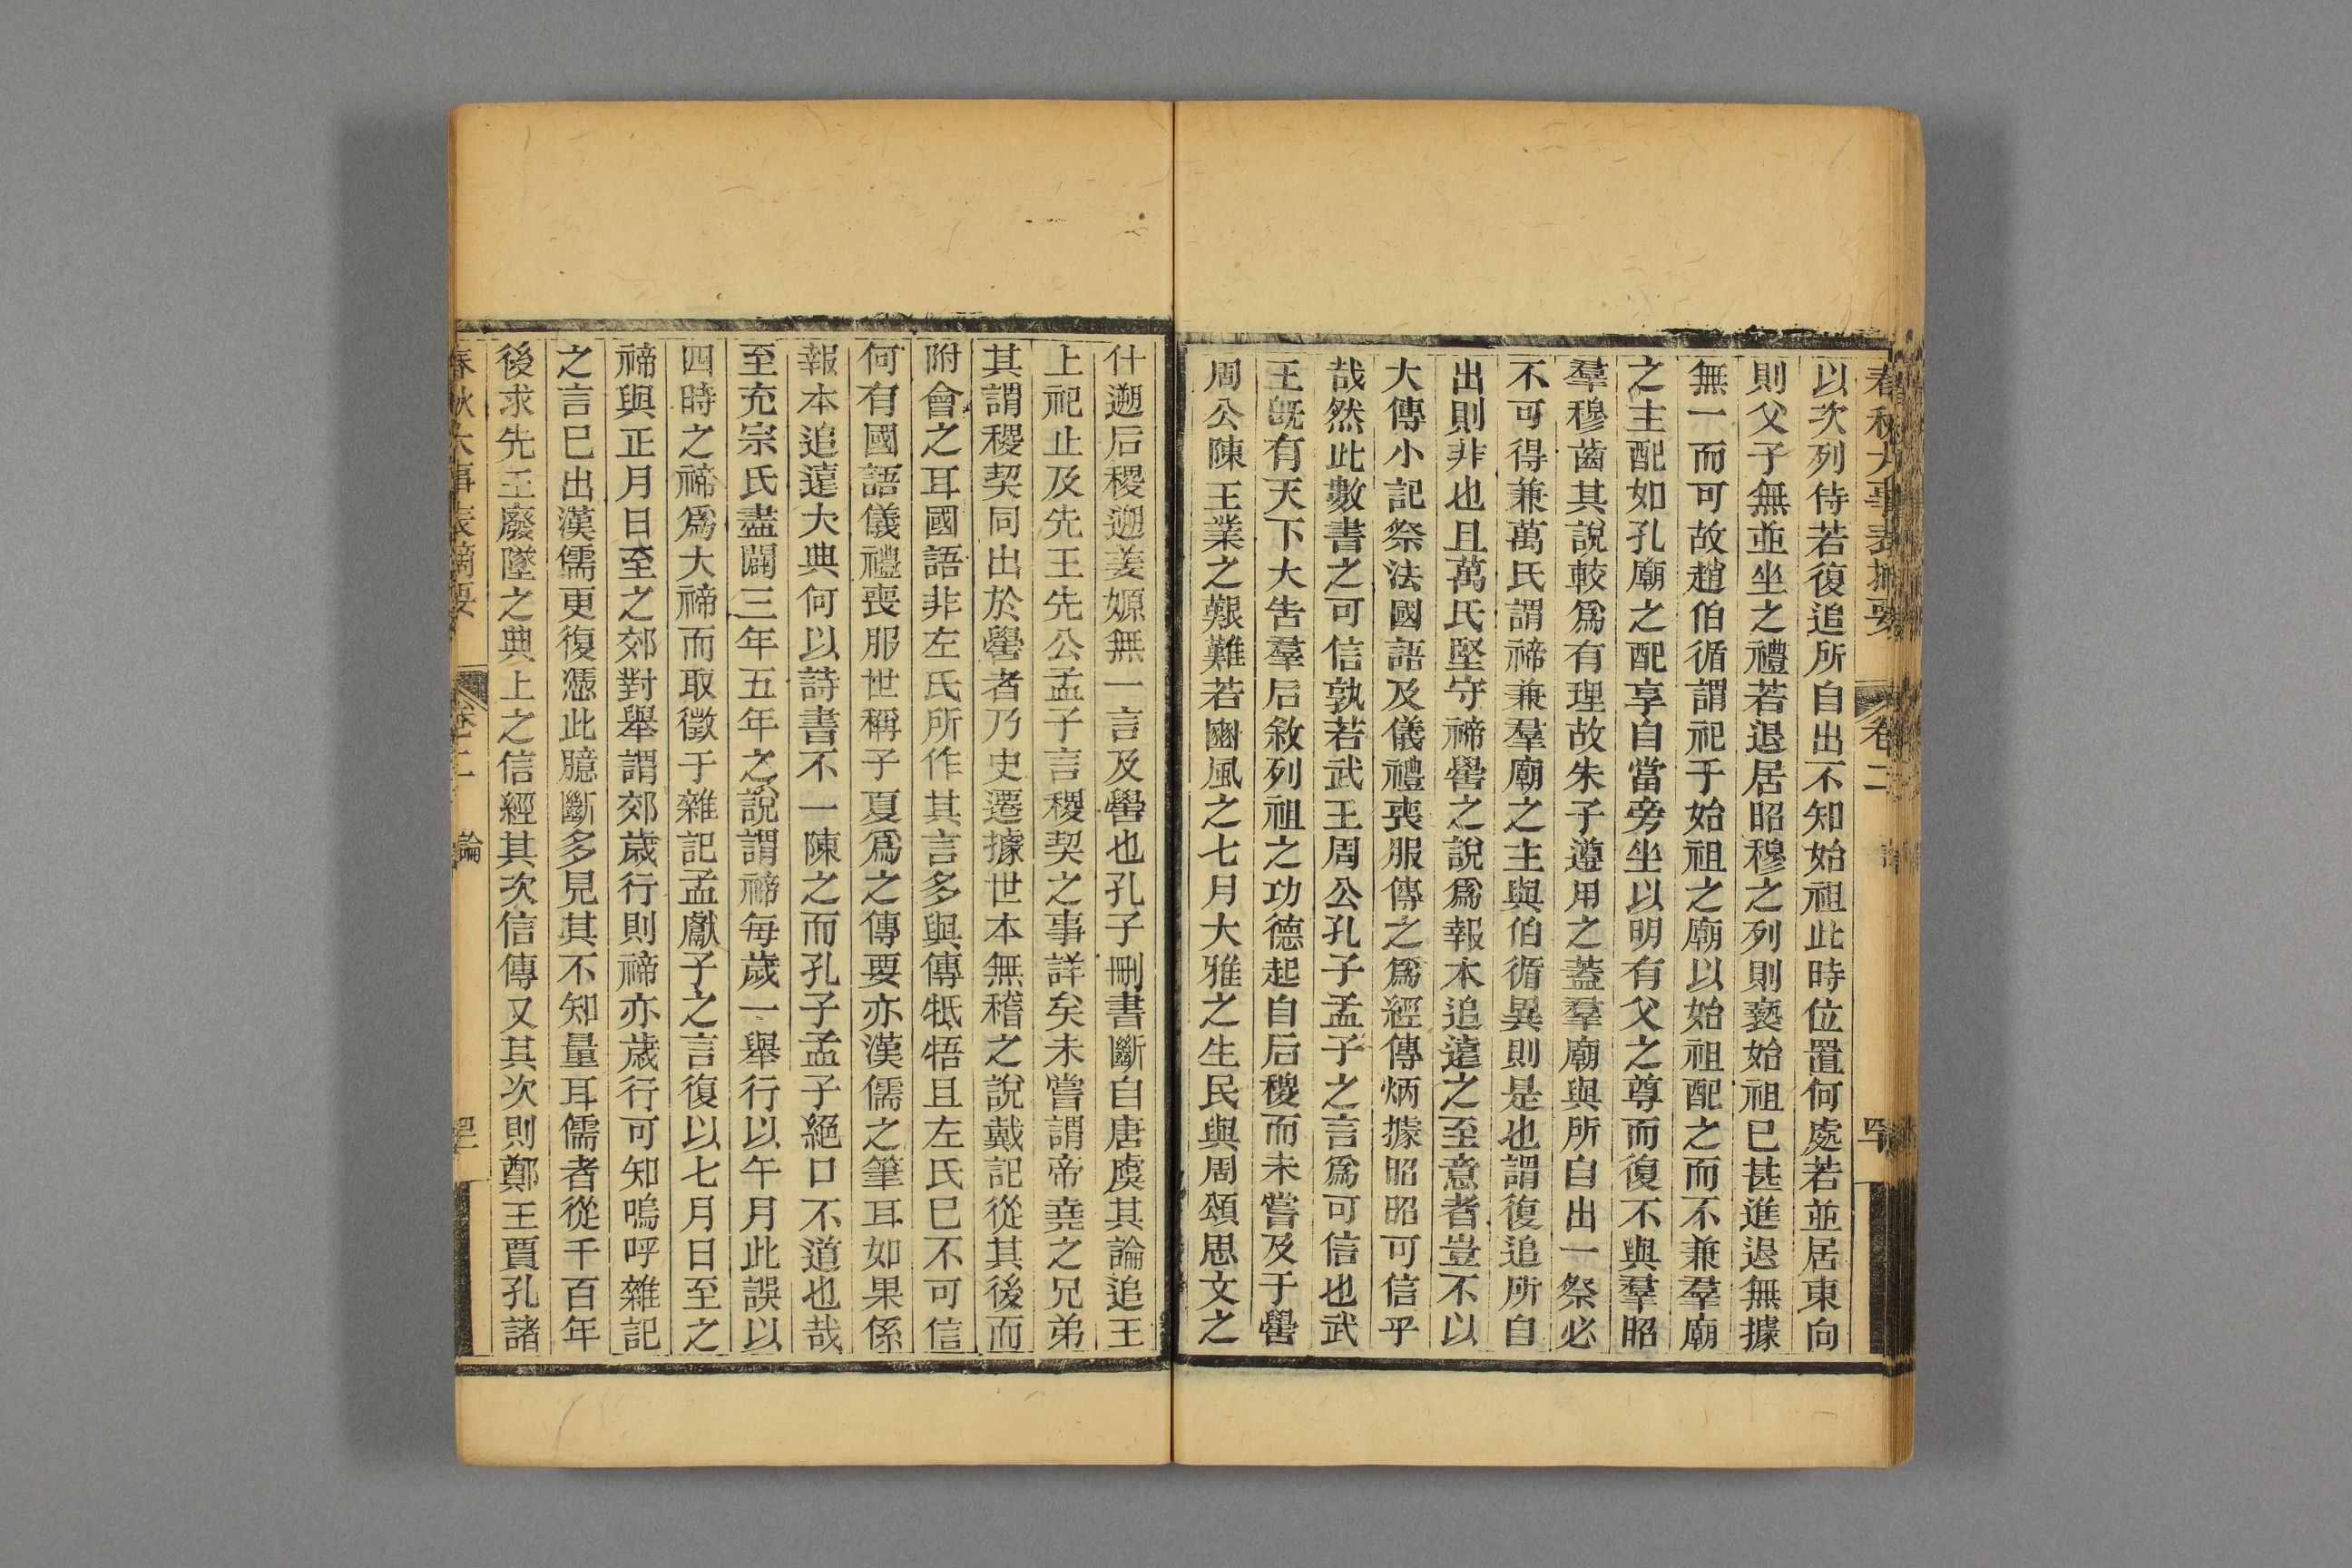 春秋大事表摘要 卷二 論
以次列侍若復追所自出不知始祖此時位置何處若並居東向
則父子無並坐之禮若退居昭穆之列則褻始祖已甚進退無據
無一而可故趙伯循謂祀于始祖之廟以始祖配之而不兼羣廟
之主配如孔廟之配享自當旁坐以明有父之尊而復不與羣昭
羣穆齒其說較爲有理故朱子遵用之蓋羣廟與所自出一祭必
不可得兼萬氏謂禘兼羣廟之主與伯循異則是也謂復追所自
出則非也且萬氏堅守禘嚳之說爲報本追遠之至意者豈不以
大傳小記祭法國語及儀禮喪服傳之爲經傳炳據昭昭可信乎
哉然此數書之可信孰若武王周公孔子孟子之言爲可信也武
王旣有天下大告羣后敘列祖之功德起自后稷而未嘗及于嚳
周公陳王業之艱難若豳風之七月大雅之生民與周頌思文之
什遡后稷遡姜嫄無一言及嚳也孔子刪書斷自唐虞其論追王
上祀止及先王先公孟子言稷契之事詳矣未嘗謂帝堯之兄弟
其謂稷契同出於嚳者乃史遷據世本無稽之說戴記從其後而
附會之耳國語非左氏所作其言多與傳牴牾且左氏已不可信
何有國語儀禮喪服世稱子夏爲之傳要亦漢儒之筆耳如果係
報本追遠大典何以詩書不一陳之而孔子孟子絕口不道也哉
至充宗氏盡闢三年五年之說謂禘每歲一舉行以午月此誤以
四時之禘爲大禘而取徵于雜記孟獻子之言復以七月日至之
禘與正月日至之郊對舉謂郊歲行則禘亦歲行可知嗚呼雜記
之言已出漢儒更復憑此臆斷多見其不知量耳儒者從千百年
後求先王廢墜之典上之信經其次信傳又其次則鄭王賈孔諸
春秋大事表摘要 卷二 論